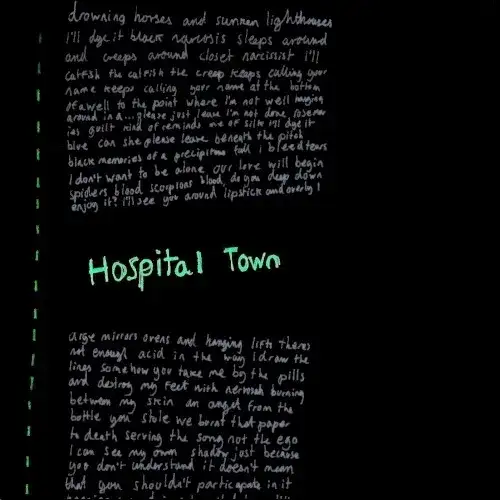 drowning horses and sunken lighthouses
I'll dye it black narcosis sleeps around
and creeps around closet narcissist i'll
catfish the catfish the creep keeps calling your
name keeps calling your name at the bottom
of a well to the point where I'm not well hanging
around in a... please just leave I'm not done, rosemar
ies guilt kind of reminds me of silk I'll dye it
blue can she please leave beneath the pitch
black memories of a precipitous fall i bleed tears
I don't want to be alone our love will begin
spiders blood scorpions blood do you deep down
enjoy it? i'll see you around lipstick and overly I
Hospital Town
large mirrors ovens and hanging lifts theres
not enough acid in the way I draw the
lines somehow you take me by the pills
and destroy my feet with burning
between my skin an angel from the
bottle you stole we burnt that paper
to death serving the song not the ego
I can see my own shadow just because
you don't understand it doesn't mean
that you shouldn't participate in it